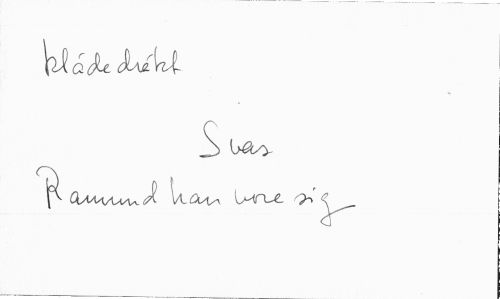 klädedräkt
Svas
Ramund han vore sig